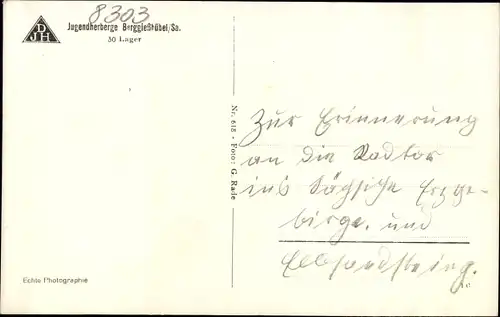 8303
D
JH
Jugendherberge Berggießhübel/Sa.
50 Lager
Nr. 618 • Foto: G. Rade
Zur Erinnerung
an die Radtor
ins Sächsische Erzge-
birge, und
Elbsandsteing.
Echte Photographie